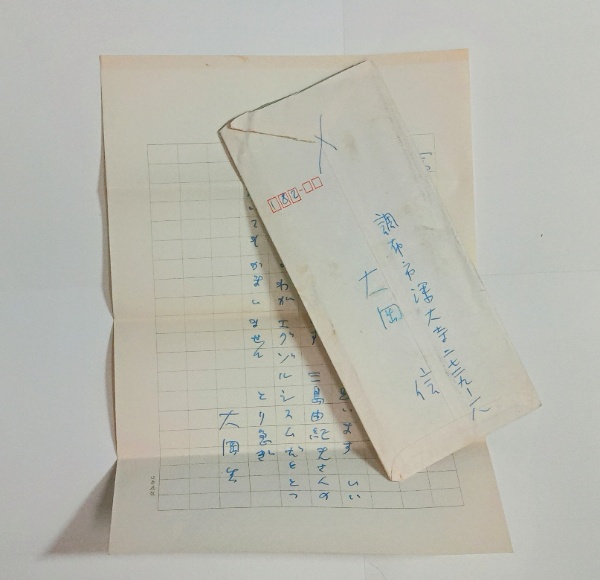 182
調布市深大寺二七二九ー一八
大岡 信
います いい
す 三島由紀夫さんの
わがエグゾルシスムをとっ
てもかまいません とり急ぎ
大岡生